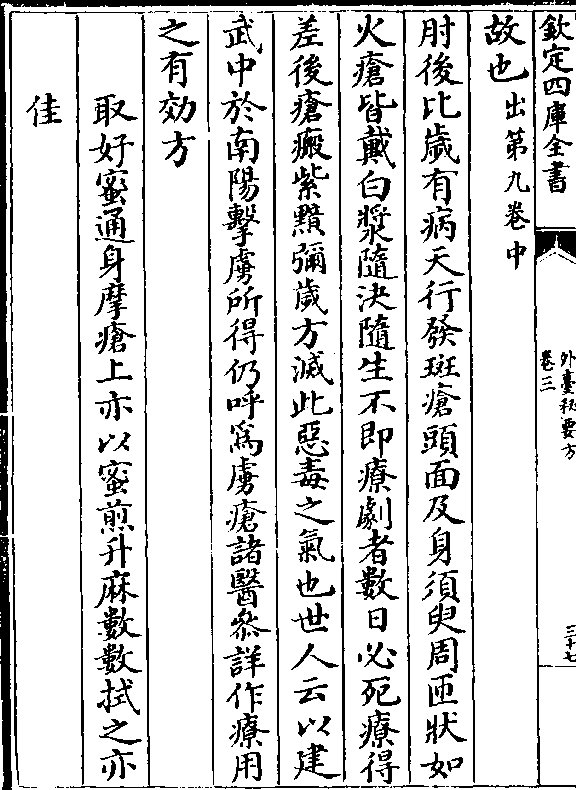 欽定四庫全書
外臺秘要方
卷三
三十七
故也出第九卷中
肘後比歲有病天行發斑瘡頭面及身須臾周匝狀如
火瘡皆戴白漿隨決隨生不即療劇者數日必死療得
差後瘡瘢紫黯彌歲方滅此惡毒之氣也世人云以建
武中於南陽擊虜所得仍呼為虜瘡諸醫叅詳作療用
之有効方
取好蜜通身摩瘡上亦以蜜煎升麻數數拭之亦
佳